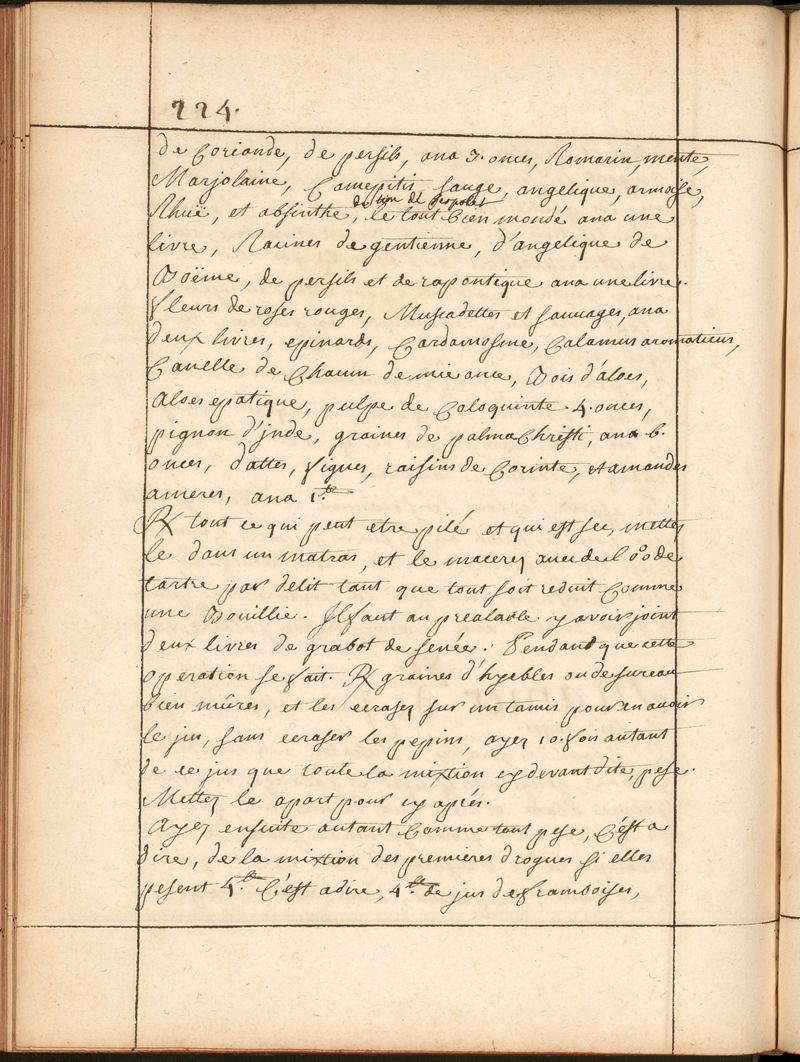 224.
de Coriande, de persils, ana 3. onces, Romarin, mente,
Marjolaine, Camepitis, sauge, angelique, armoise,
Rhuë, et absinthe, le tout bien mondé ana une
livre, Racines de gentienne, d'angelique de
Boëme, de persils et de rapontique ana une livre.
fleurs de roses rouges, Muscadettes et sauuages, ana
deux livres, epinards, Cardamosme, Calamus aromaticus,
Canelle de Chacun demie once, Bois d'aloes,
Aloes epatique, pulpe de Coloquinte 4. onces,
pignon d'jnde, graines de palma Christi, ana 6.
onces, dattes, figues, raisins de Corinte, et amandes
ameres, ana 1.te
Rx tout ce qui peut etre pilé et qui est sec, mettez
le dans un matras, et le macerez auec de l' de
tartre par delit tant que tout soit reduit Comme
une Bouillie. Il faut au prealable y avoir joint
deux livres de grabot de senée. Pendant que cette
operation se fait. Rx graines d'hyebles ou de sureau
bien mûres, et les ecrasez sur un tamis pour en avoir
le jus, sans ecraser les pepins, ayez 10. fois autant
de ce jus que toute la mixtion cy devant dite, pese.
Mettez le apart pour cy aprés.
Ayez ensuite autant Comme tout pese, C'est a
dire, de la mixtion des premieres drogues si elles
pesent 4.te C'est a dire, 4.te de jus de framboises,